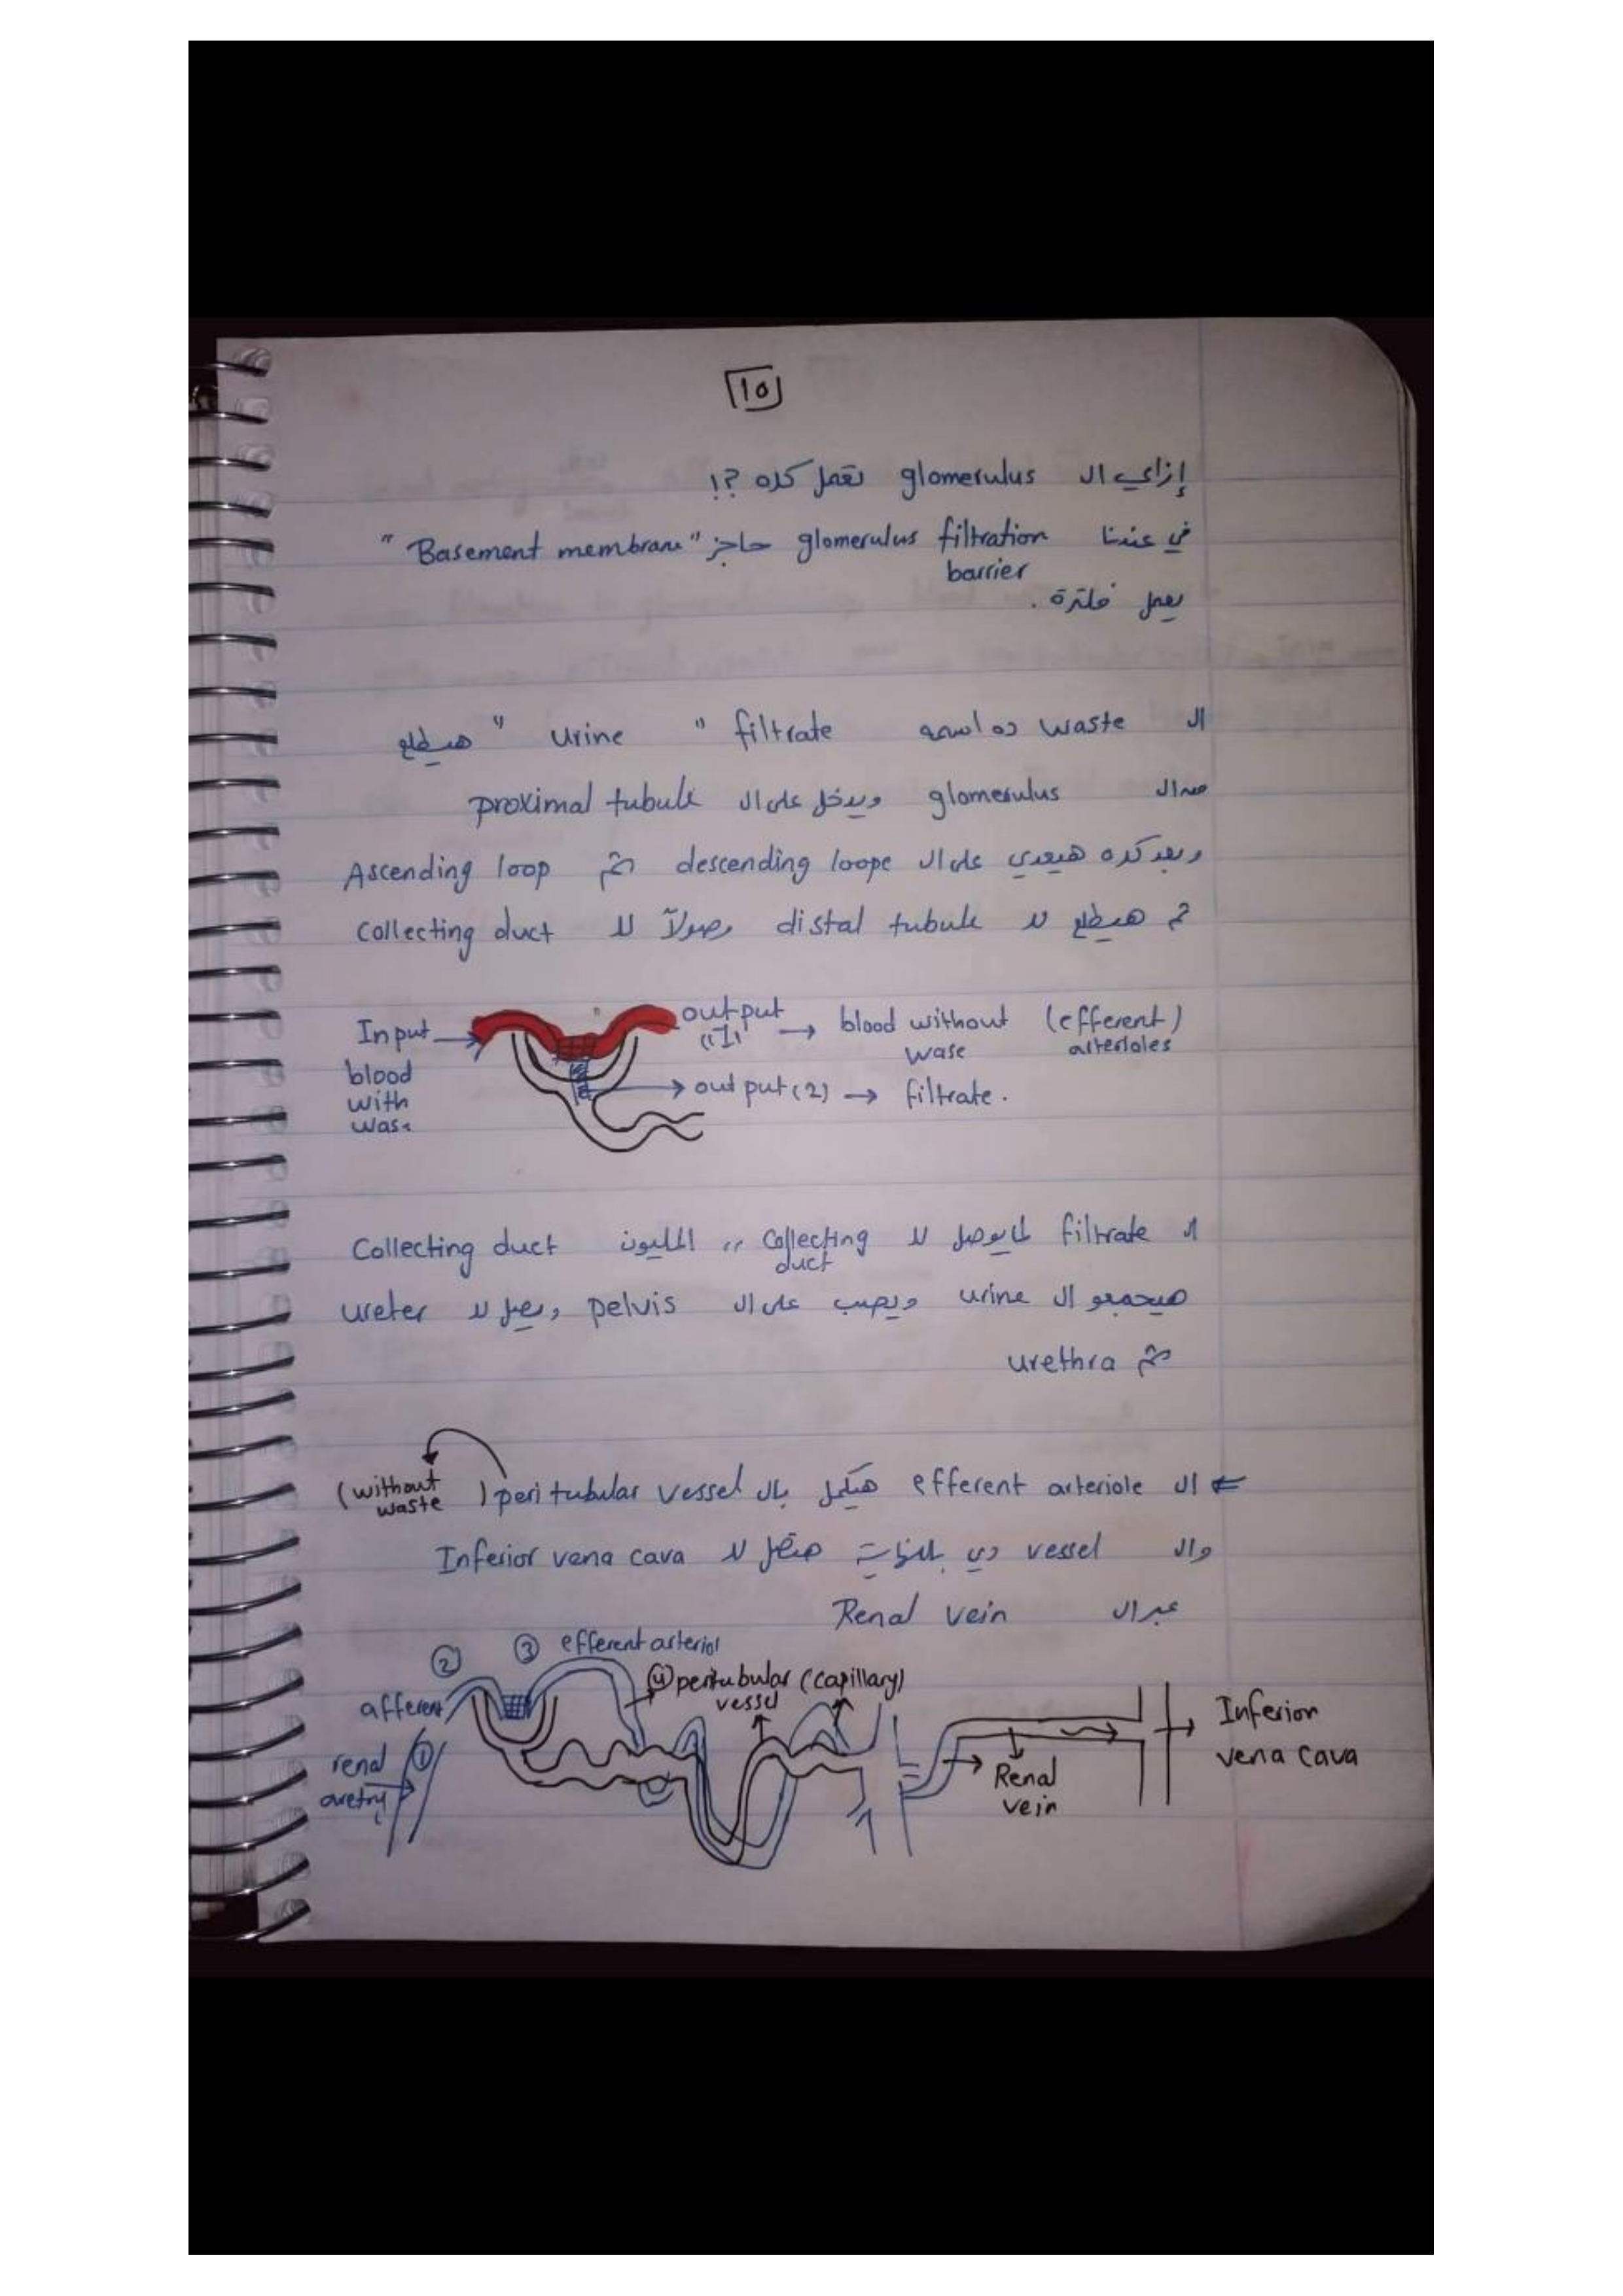 10
إزاي ال glomerulus تعمل كده ?!
في عندنا glomerulus filtration barrier حاجز "Basement membrane"
يعمل فلترة .
ال waste ده اسمه filtrate " urine " هيطلع
من ال glomerulus ويدخل على ال proximal tubule
وبعد كده هيعدي على ال descending loope ثم Ascending loop
ثم هيطلع لل distal tubule وصولاً لل collecting duct
Input
blood
with
was
output "1" → blood without wase (efferent) arterioles
output (2) → filtrate .
ال filtrate لما يوصل لل Collecting duct ,, المليون Collecting duct
هيجمعو ال urine ويصب على ال pelvis ويصل لل ureter
ثم urethra
← ال efferent arteriole هيكمل بال peritubular vessel (without waste)
وال vessel دي بالنهاية هتصل لل Inferior vena cava
عبر ال Renal vein
② ③ efferent arteriol
afferent
④ peritubular (capillary)
vessel
renal ①
aretry
Renal
vein
Inferion
vena cava